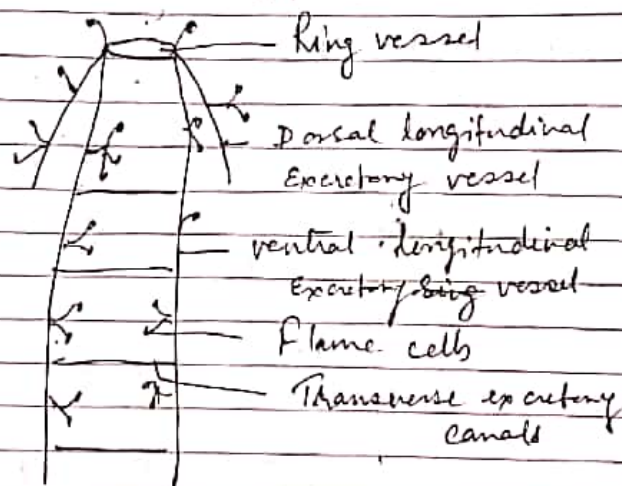 Ring vessel
Dorsal longitudinal
Excretory vessel
ventral longitudinal
Excretory vessel
Flame cells
Transverse excretory
canals